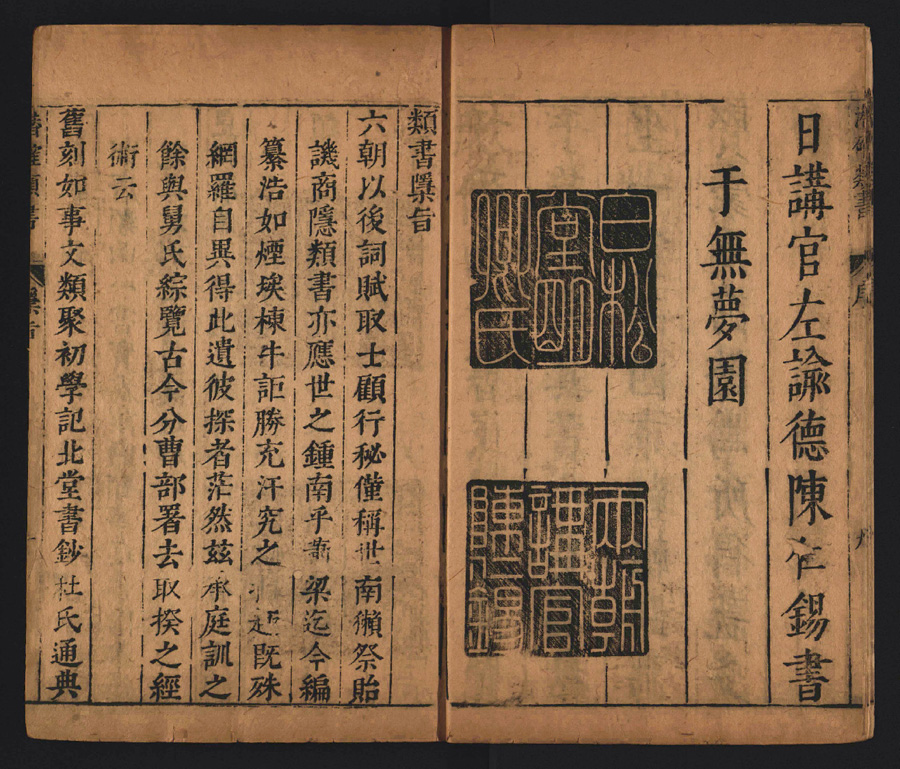 類書
序
日講官左諭德陳仁錫書
于無夢園
兩朝
講官
陳仁錫
類書㮣旨
六朝以後詞賦取士顧行秘僅稱世南獺祭貽
譏商隱類書亦應世之鍾南乎蕭梁迄今編
纂浩如煙埃棟牛詎勝充汗究之既殊
網羅自異得此遺彼探者茫然茲承庭訓之
餘與舅氏綜覽古今分曹部署去取揆之經
術云
舊刻如事文類聚初學記北堂書鈔杜氏通典
潛確類書
㮣旨